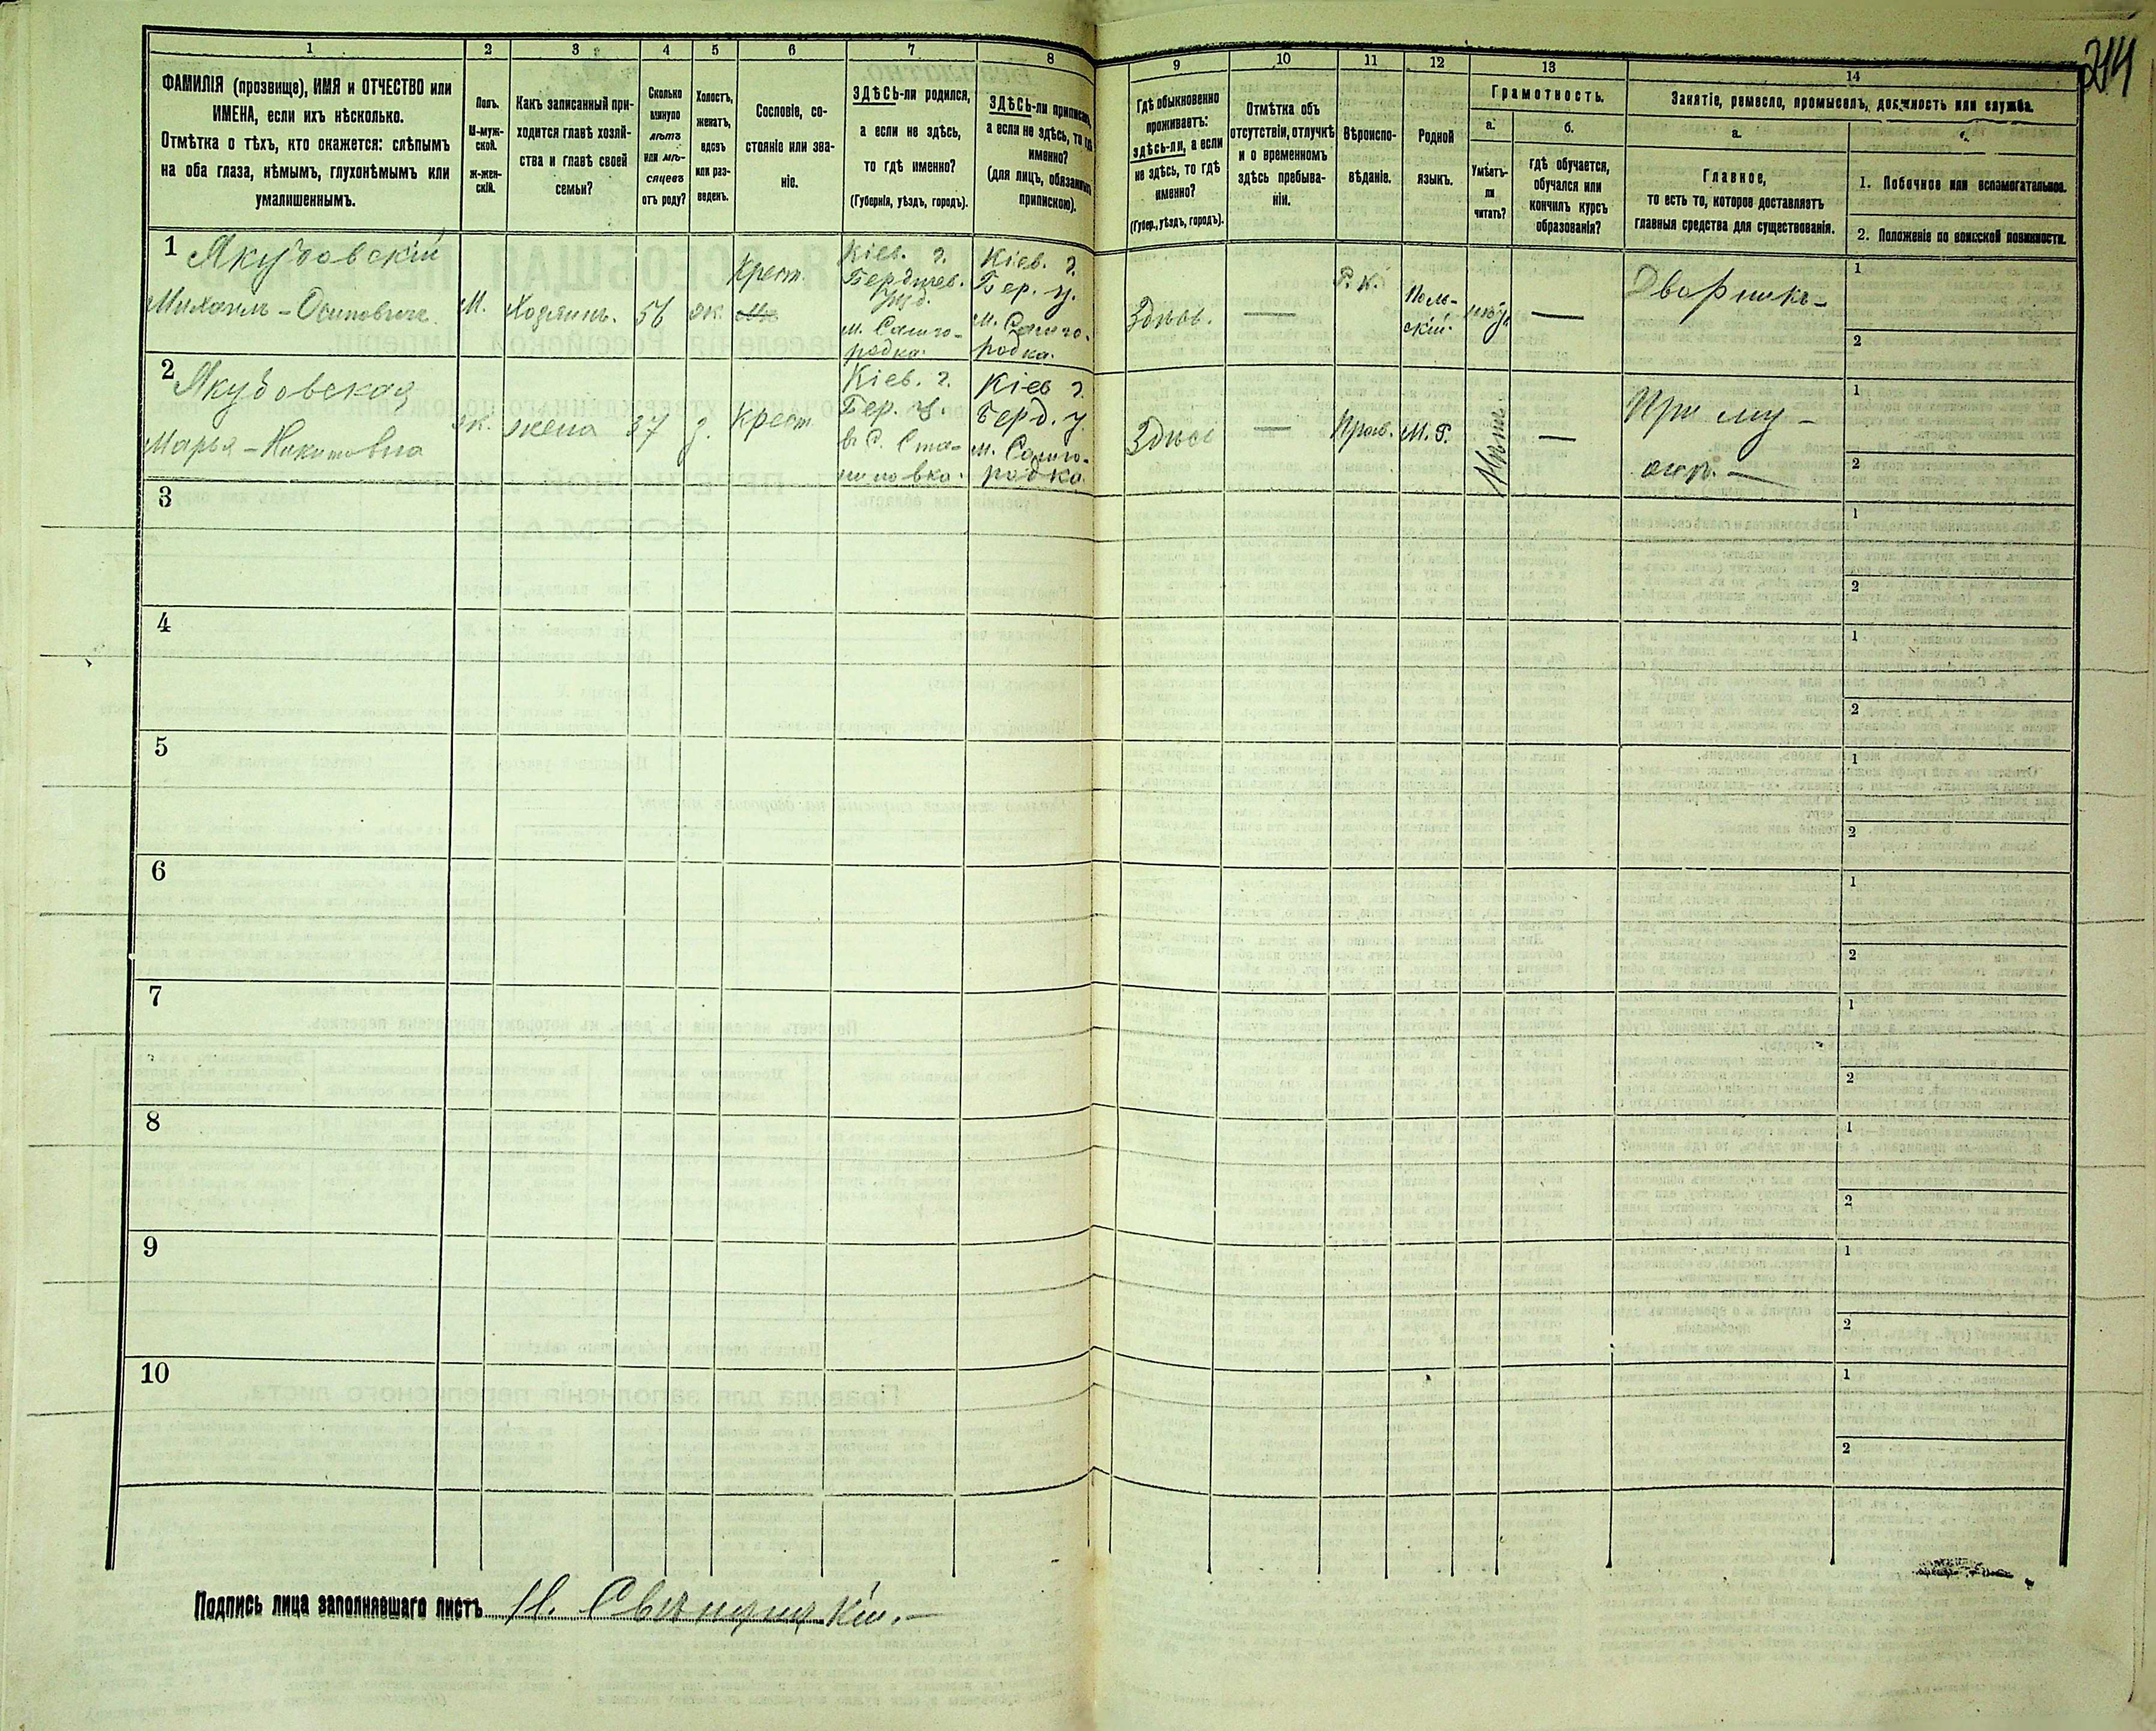 244
1
2
3
4
5
6
7
8
9
10
11
12
13
14
ФАМИЛІЯ (прозвище), ИМЯ и ОТЧЕСТВО или
ИМЕНА, если ихъ нѣсколько.
Отмѣтка о тѣхъ, кто окажется: слѣпымъ
на оба глаза, нѣмымъ, глухонѣмымъ или
умалишеннымъ.
Полъ.
М-муж-
ской.
Ж-жен-
скій.
Какъ записанный при-
ходится главѣ хозяй-
ства и главѣ своей
семьи?
Сколько
минуло
лѣтъ
или мѣ-
сяцевъ
отъ роду?
Холостъ,
женатъ,
вдовъ
или раз-
веденъ.
Сословіе, со-
стояніе или зва-
ніе.
ЗДѢСЬ-ли родился,
а если не здѣсь,
то гдѣ именно?
(Губернія, уѣздъ, городъ).
ЗДѢСЬ-ли приписанъ,
а если не здѣсь, то гдѣ
именно?
(для лицъ, обязанныхъ
припискою).
Гдѣ обыкновенно
проживаетъ:
здѣсь-ли, а если
не здѣсь, то гдѣ
именно?
(Губер., уѣздъ, городъ).
Отмѣтка объ
отсутствіи, отлучкѣ
и о временномъ
здѣсь пребыва-
ніи.
Вѣроиспо-
вѣданіе.
Родной
языкъ.
Грамотность.
а.
Умѣетъ-
ли
читать?
б.
гдѣ обучается,
обучался или
кончилъ курсъ
образованія?
Занятіе, ремесло, промыселъ, должность или служба.
а.
Главное,
то есть то, которое доставляетъ
главныя средства для существованія.
1. Побочное или вспомогательное.
2. Положеніе по воинской повинности.
1
Якубовскій
Михаилъ - Осиповичъ.
М.
Хозяинъ.
56
ж.
Крест.
Кіев. г.
Бердичев.
уѣзд.
м. Самго-
родка.
Кіев. г.
Бер. у.
м. Самго-
родка.
Здѣсь.
—
Р. К.
Поль-
скій.
—
Дворникъ -
1
2
2
Якубовская
Марья - Никитовна
ж.
жена
37
з.
Крест
Кіев. г.
Бер. у.
Кіев г.
Берд. у.
м. Самго-
родка.
Здѣсь
—
Прав.
М. Р.
Нѣтъ.
—
При му -
жѣ. —
1
2
3
1
2
4
1
2
5
1
2
6
1
2
7
1
2
8
1
2
9
1
2
10
1
2
Подпись лица заполнявшаго листъ Н. Свѣнцицкій. —